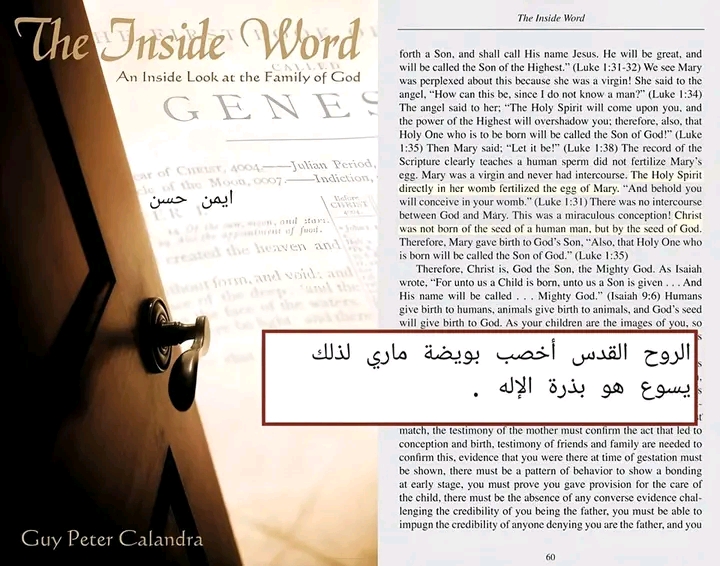 The Inside Word
An Inside Look at the Family of God
GENES
ear of CHRIST, 4004.—Julian Period,
cle of the Moon, 0007.—Indiction,
ايمن حسن
Before
CHRIST
the sun, moon, and stars.
And the appointment of food.
created the heaven and
without form, and void; and
the face of the
Guy Peter Calandra
The Inside Word
forth a Son, and shall call His name Jesus. He will be great, and
will be called the Son of the Highest.” (Luke 1:31-32) We see Mary
was perplexed about this because she was a virgin! She said to the
angel, “How can this be, since I do not know a man?” (Luke 1:34)
The angel said to her; “The Holy Spirit will come upon you, and
the power of the Highest will overshadow you; therefore, also, that
Holy One who is to be born will be called the Son of God!” (Luke
1:35) Then Mary said; “Let it be!” (Luke 1:38) The record of the
Scripture clearly teaches a human sperm did not fertilize Mary’s
egg. Mary was a virgin and never had intercourse. The Holy Spirit
directly in her womb fertilized the egg of Mary. “And behold you
will conceive in your womb.” (Luke 1:31) There was no intercourse
between God and Mary. This was a miraculous conception! Christ
was not born of the seed of a human man, but by the seed of God.
Therefore, Mary gave birth to God’s Son, “Also, that Holy One who
is born will be called the Son of God.” (Luke 1:35)
Therefore, Christ is, God the Son, the Mighty God. As Isaiah
wrote, “For unto us a Child is born, unto us a Son is given . . . And
His name will be called . . . Mighty God.” (Isaiah 9:6) Humans
give birth to humans, animals give birth to animals, and God’s seed
will give birth to God. As your children are the images of you, so
الروح القدس أخصب بويضة ماري لذلك
يسوع هو بذرة الإله .
match, the testimony of the mother must confirm the act that led to
conception and birth, testimony of friends and family are needed to
confirm this, evidence that you were there at time of gestation must
be shown, there must be a pattern of behavior to show a bonding
at early stage, you must prove you gave provision for the care of
the child, there must be the absence of any converse evidence chal-
lenging the credibility of you being the father, you must be able to
impugn the credibility of anyone denying you are the father, and you
60